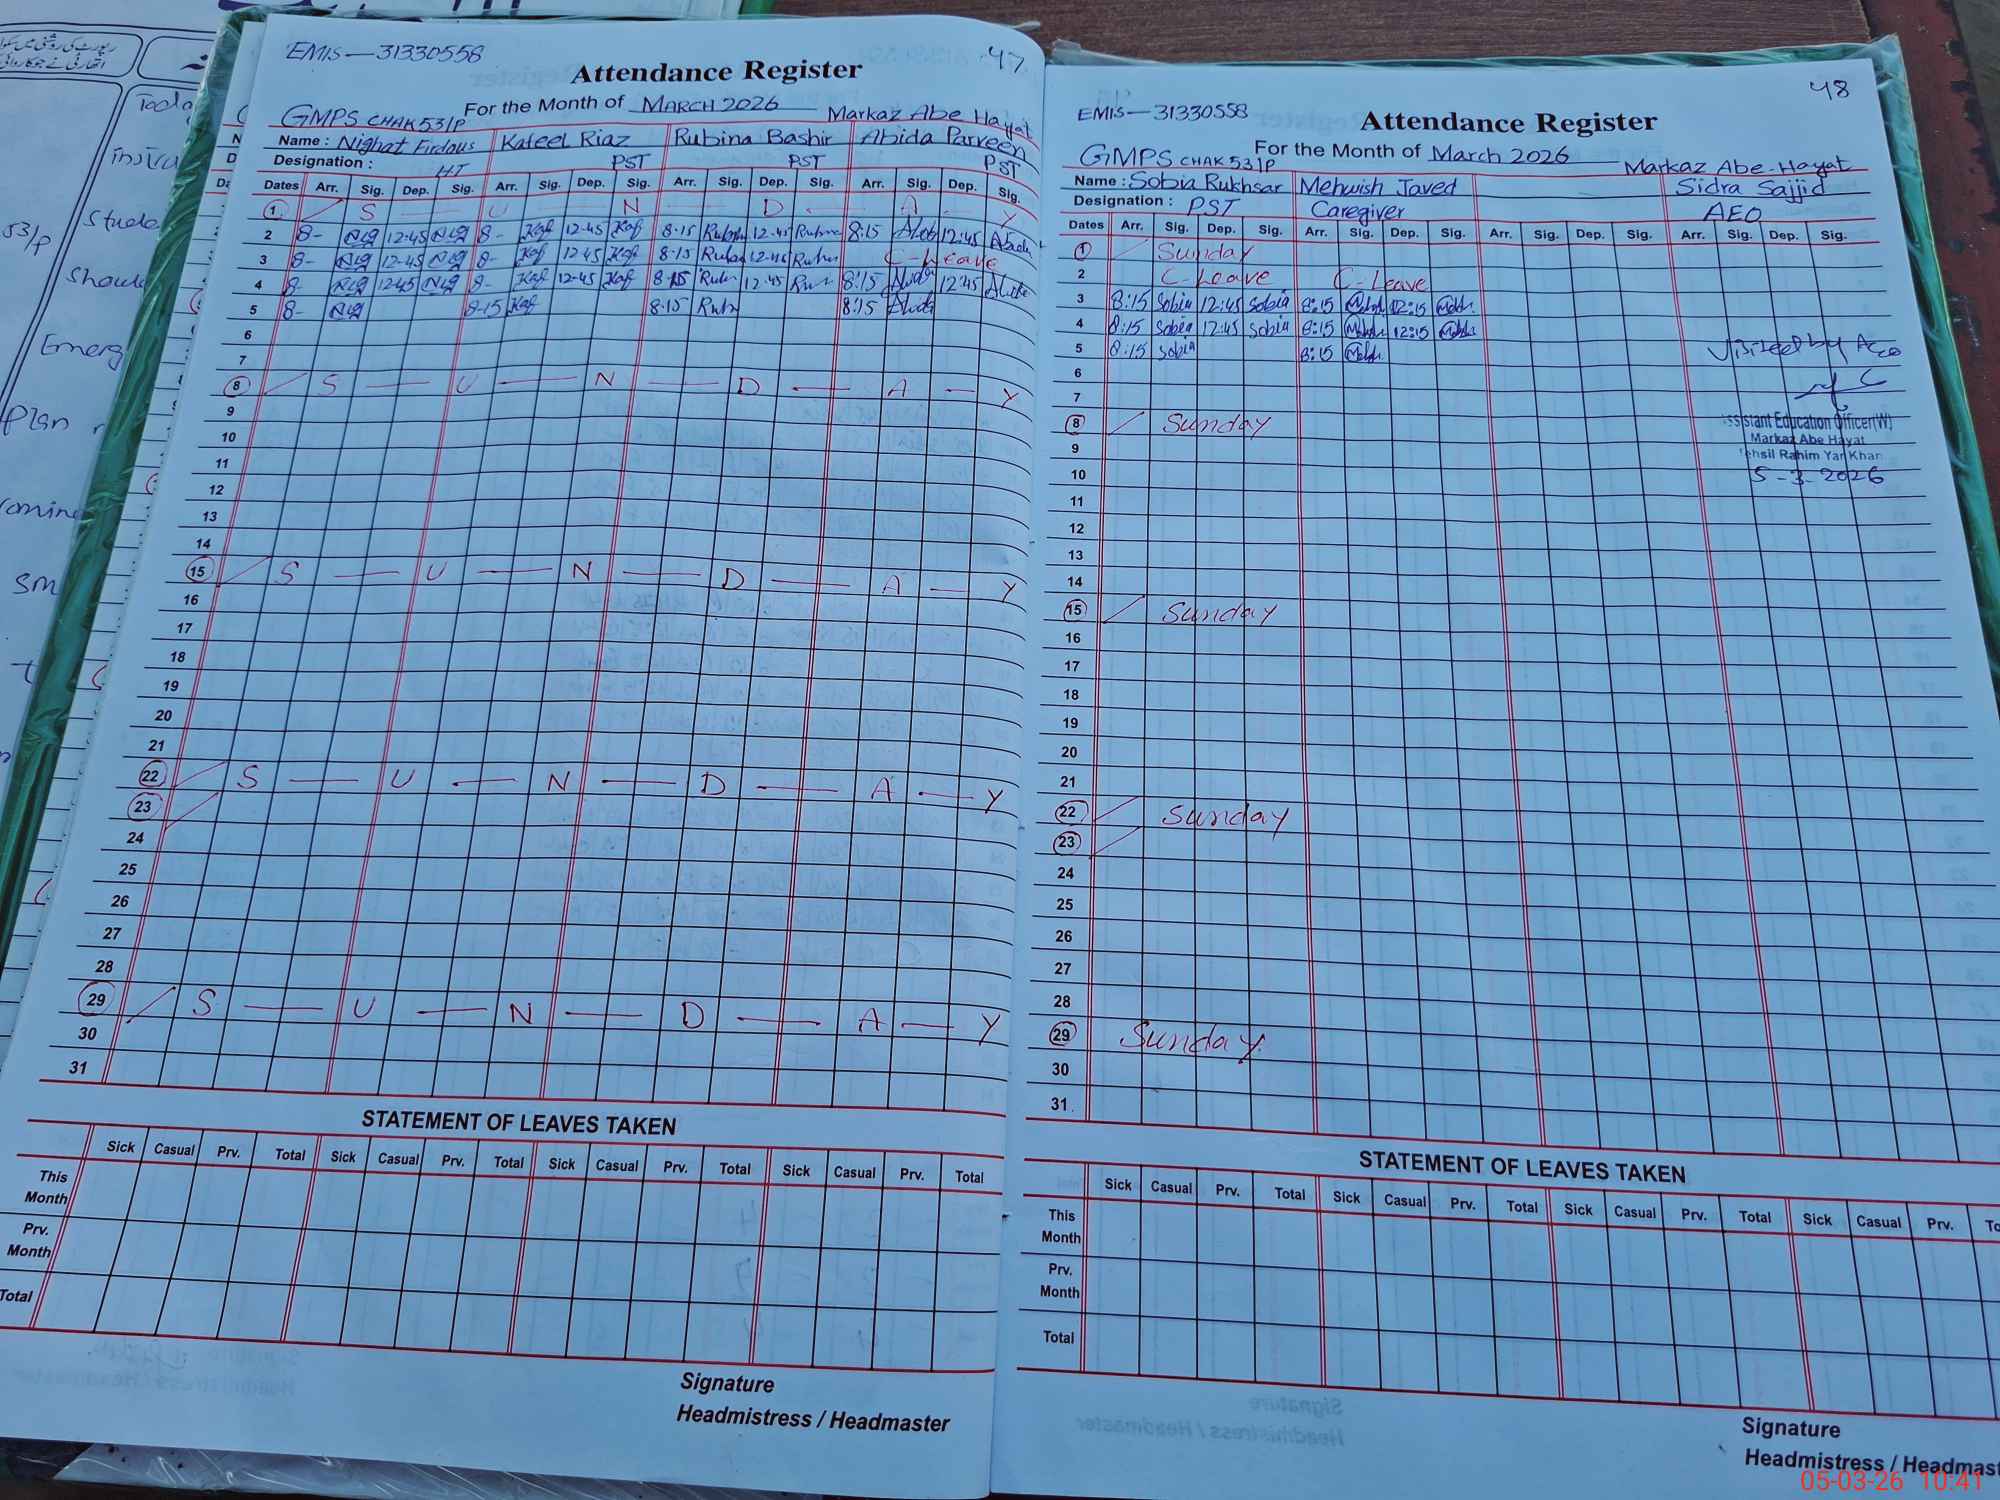 EMIS — 31330558
47
Attendance Register
For the Month of MARCH 2026
GMPS CHAK 53/P
Markaz Abe Hayat
Name : Nighat Firdous Kafeel Riaz Rubina Bashir Abida Parveen
Designation : HT PST PST PST
Dates Arr. Sig. Dep. Sig. Arr. Sig. Dep. Sig. Arr. Sig. Dep. Sig. Arr. Sig. Dep. Sig.
1 S — U — N — D — A — Y
2 8- 12-45 8- Kaf 12-45 Kaf 8-15 12-45 8:15 12:45
3 8- 12-45 8- Kaf 12-45 Kaf 8-15 12-45 C-Leave
4 8- 12-45 8- Kaf 12-45 Kaf 8-15 12-45 8:15 12:45
5 8- 8-15 Kaf 8-15 8:15
6
7
8 S — U — N — D — A — Y
9
10
11
12
13
14
15 S — U — N — D — A — Y
16
17
18
19
20
21
22 S — U — N — D — A — Y
23
24
25
26
27
28
29 S — U — N — D — A — Y
30
31
STATEMENT OF LEAVES TAKEN
Sick Casual Prv. Total Sick Casual Prv. Total Sick Casual Prv. Total Sick Casual Prv. Total
This Month
Prv. Month
Total
Signature
Headmistress / Headmaster
48
EMIS — 31330558
Attendance Register
For the Month of March 2026
GMPS CHAK 53/P
Markaz Abe-Hayat
Name : Sobia Rukhsar Mehwish Javed Sidra Sajjid
Designation : PST Caregiver AEO
Dates Arr. Sig. Dep. Sig. Arr. Sig. Dep. Sig. Arr. Sig. Dep. Sig. Arr. Sig. Dep. Sig.
1 Sunday
2 C-Leave C-Leave
3 8:15 Sobia 12:45 Sobia 8:15 12:15
4 8:15 Sobia 12:45 Sobia 8:15 12:15
5 8:15 Sobia 8:15
Visited by AEO
6
7
8 Sunday
Assistant Education Officer(W)
9
Markaz Abe Hayat
Tehsil Rahim Yar Khan
10
5-3-2026
11
12
13
14
15 Sunday
16
17
18
19
20
21
22 Sunday
23
24
25
26
27
28
29 Sunday
30
31
STATEMENT OF LEAVES TAKEN
Sick Casual Prv. Total Sick Casual Prv. Total Sick Casual Prv. Total Sick Casual Prv.
This Month
Prv. Month
Total
Signature
Headmistress / Headmast
05-03-26 10:41